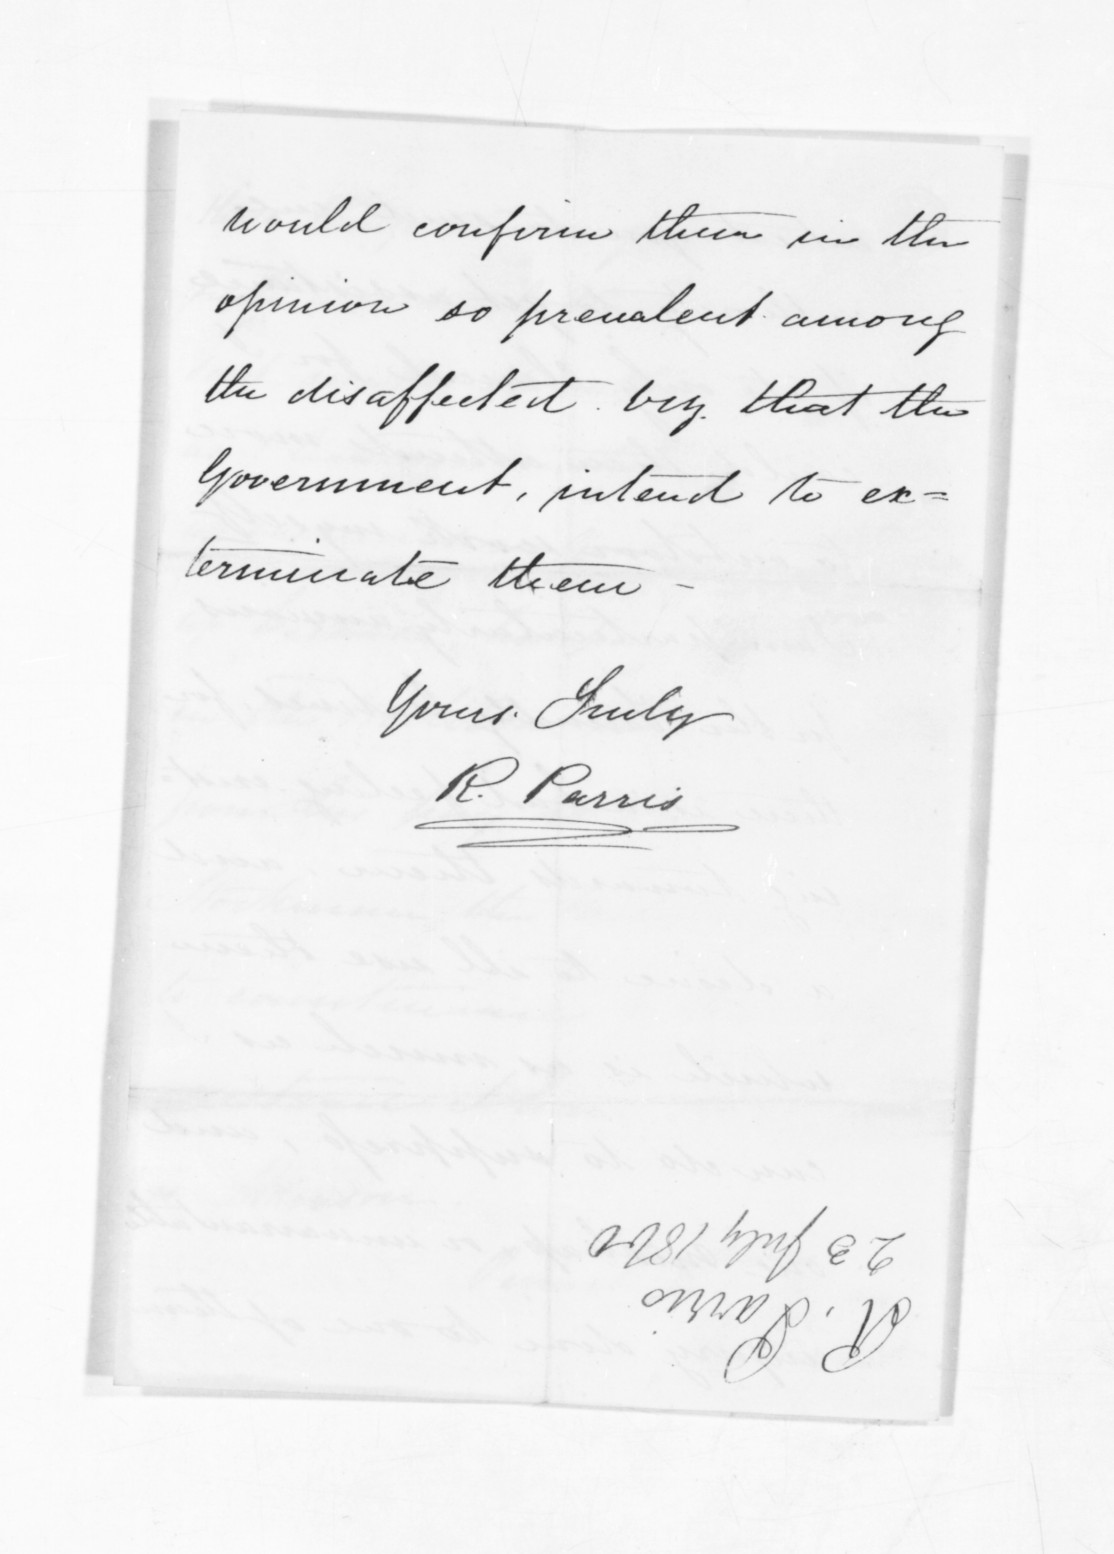 would confirm them in the
opinion so prevalent among
the disaffected viz. that the
Government, intend to ex=
terminate them -
Yours Truly
R. Parris
R. Parris
23 July 1860